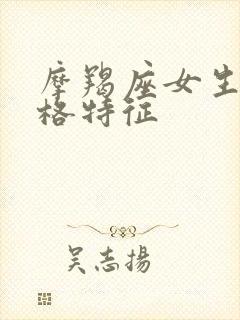 摩羯座女生
格特征
吴志揚